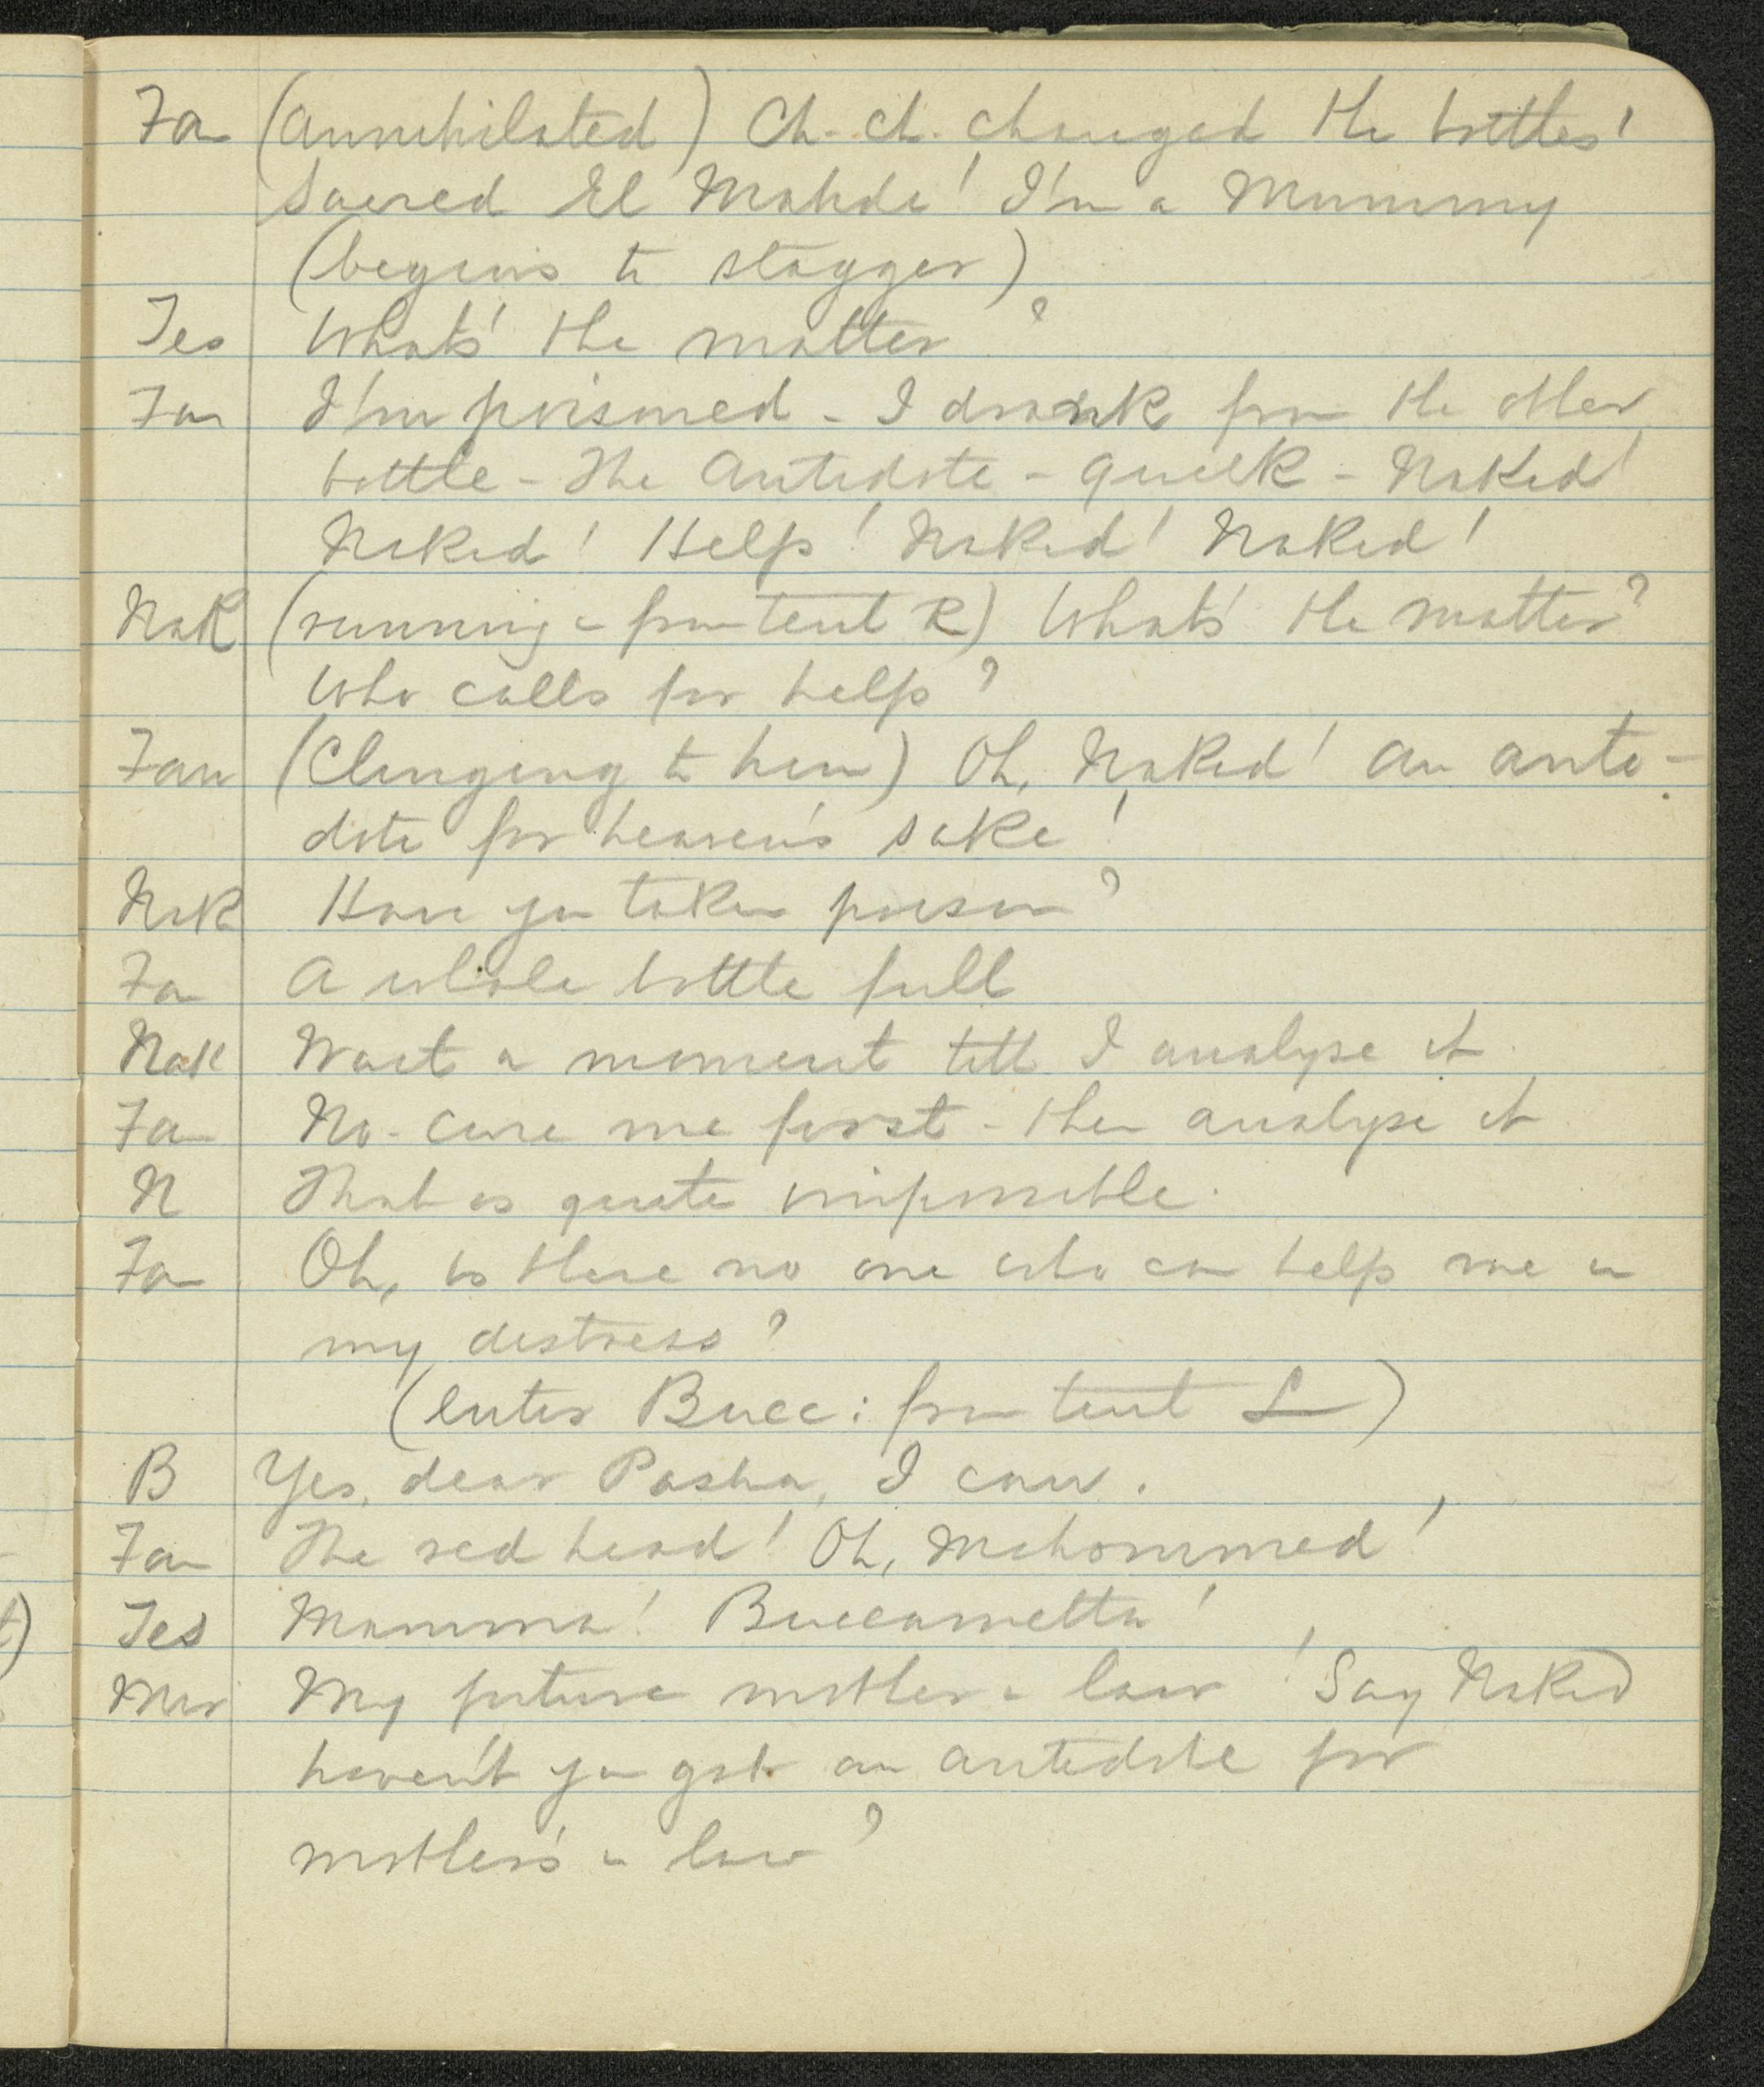 Fan (Annihilated) Ch-ch-changed the bottles!
Sacred El Mahdi! I'm a Mummy
(begins to stagger)
Tes What's the matter?
Fan I'm poisoned - I drank from the other
bottle - The Antidote - quick - Naked!
Naked! Help! Naked! Naked!
Nak (running in from tent R) What's the matter?
Who calls for help?
Fan (Clinging to him) Oh, Naked! An anti-
dote for heaven's sake!
Nak Have you taken poison?
Fa A whole bottle full
Nak Wait a moment till I analyse it.
Fan No - Cure me first - then analyse it
N That is quite impossible.
Fan Oh, is there no one who can help me in
my distress?
(enter Bucc: from tent L)
B Yes, dear Pasha, I can.
Fan The red head! Oh, Mahommed!
Tes Mamma! Buccametta!
Mur My future mother in law! Say Naked
haven't you got an antidote for
mother's in law?